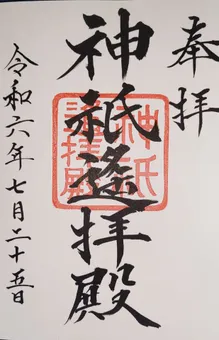 奉拝
神祇遙拝殿
神祇遙拝殿
令和六年七月二十五日